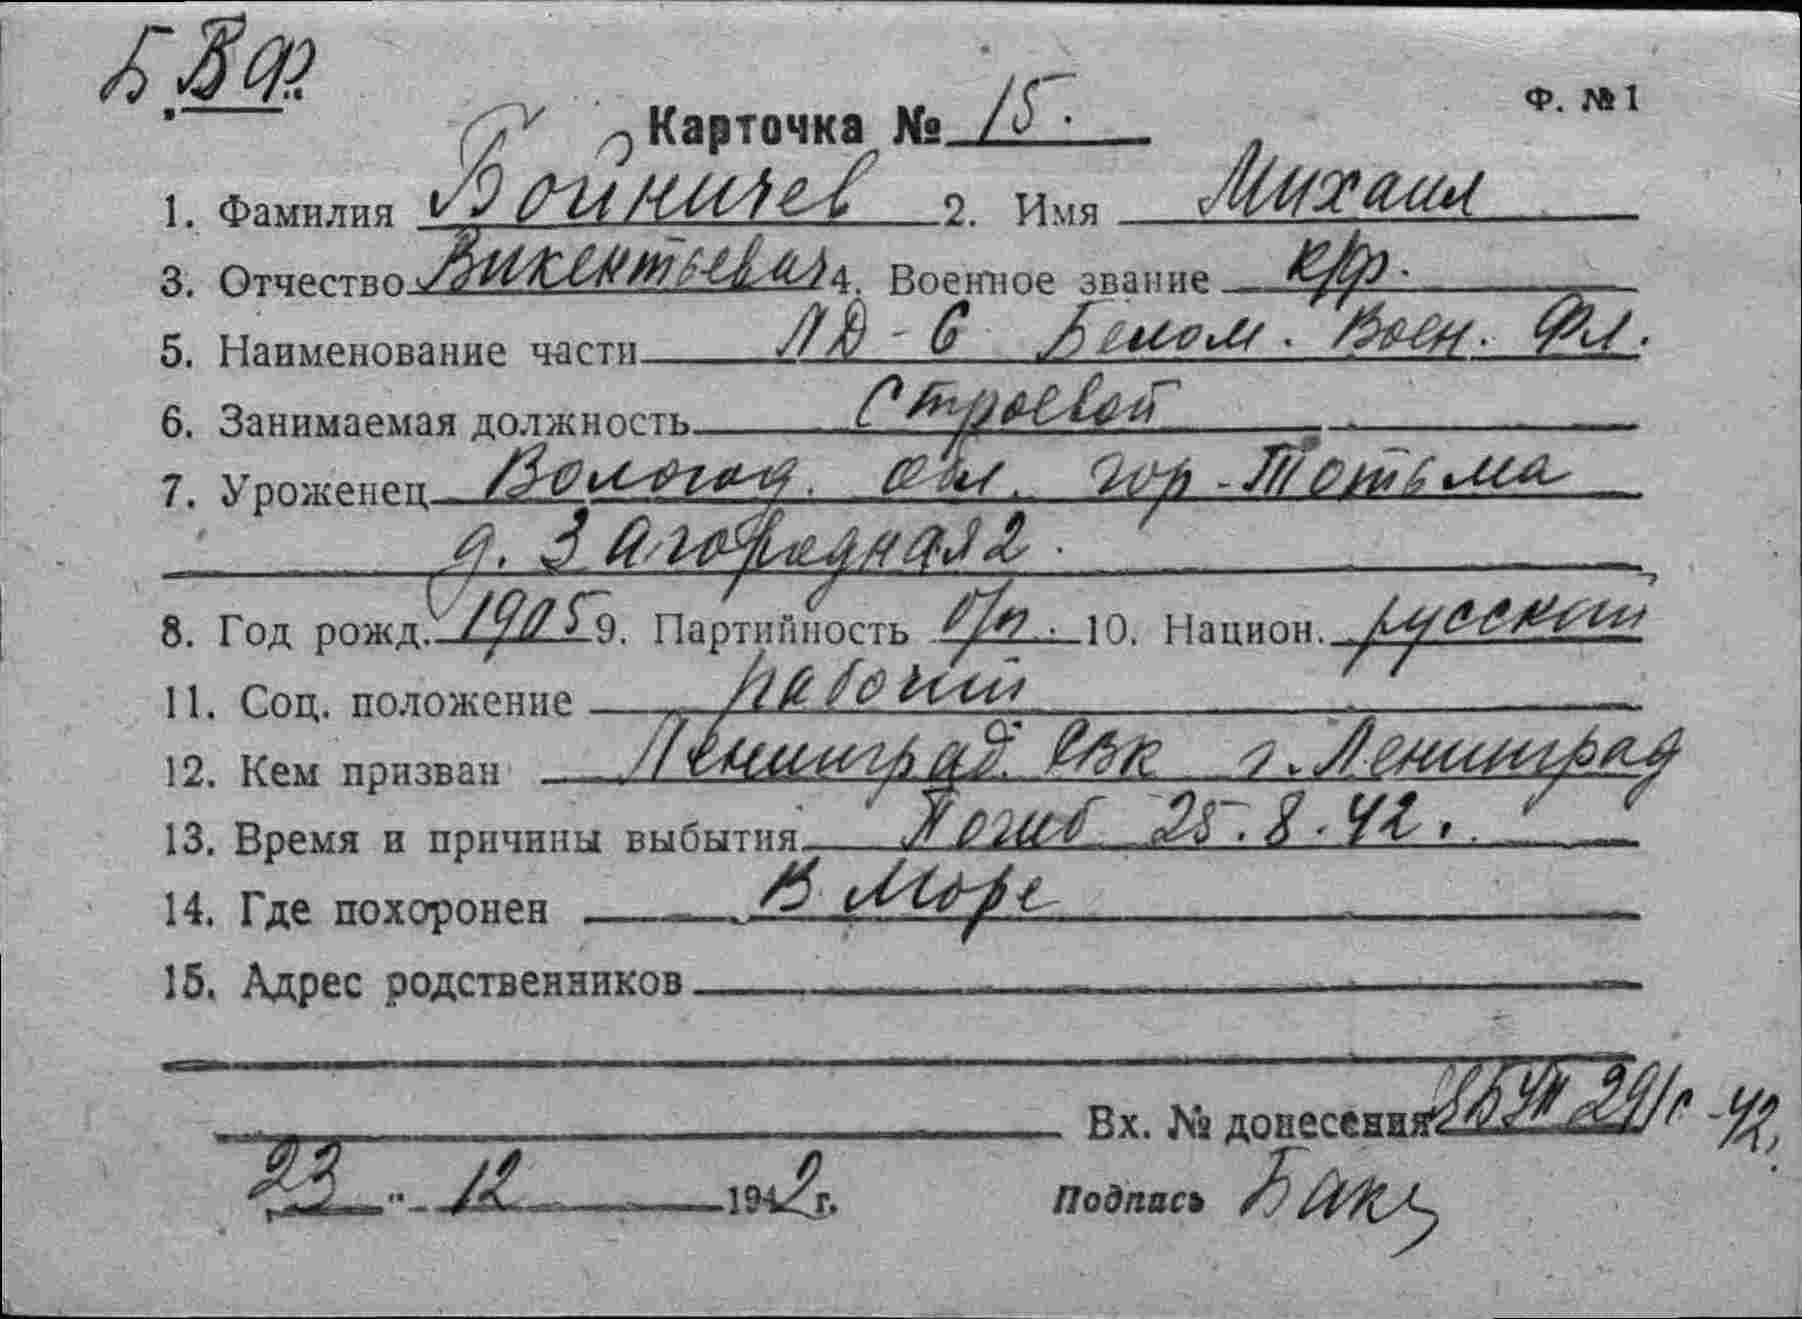 Б.В.Ф.
Ф. №1
Карточка № 15.
1. Фамилия Бойничев 2. Имя Михаил
3. Отчество Викентьевич 4. Военное звание к/ф.
5. Наименование части ЛД-6 Белом. Воен. Фл.
6. Занимаемая должность Строевой
7. Уроженец Вологод. обл. гор-Тотьма
д. Загородная 2.
8. Год рожд. 1905 9. Партийность б/п. 10. Национ. русский
11. Соц. положение рабочий
12. Кем призван Ленинград. СВК г. Ленинград
13. Время и причины выбытия Погиб 25.8.42.
14. Где похоронен В море
15. Адрес родственников
Вх. № донесения 29/с -42.
23 " 12 1942 г. Подпись